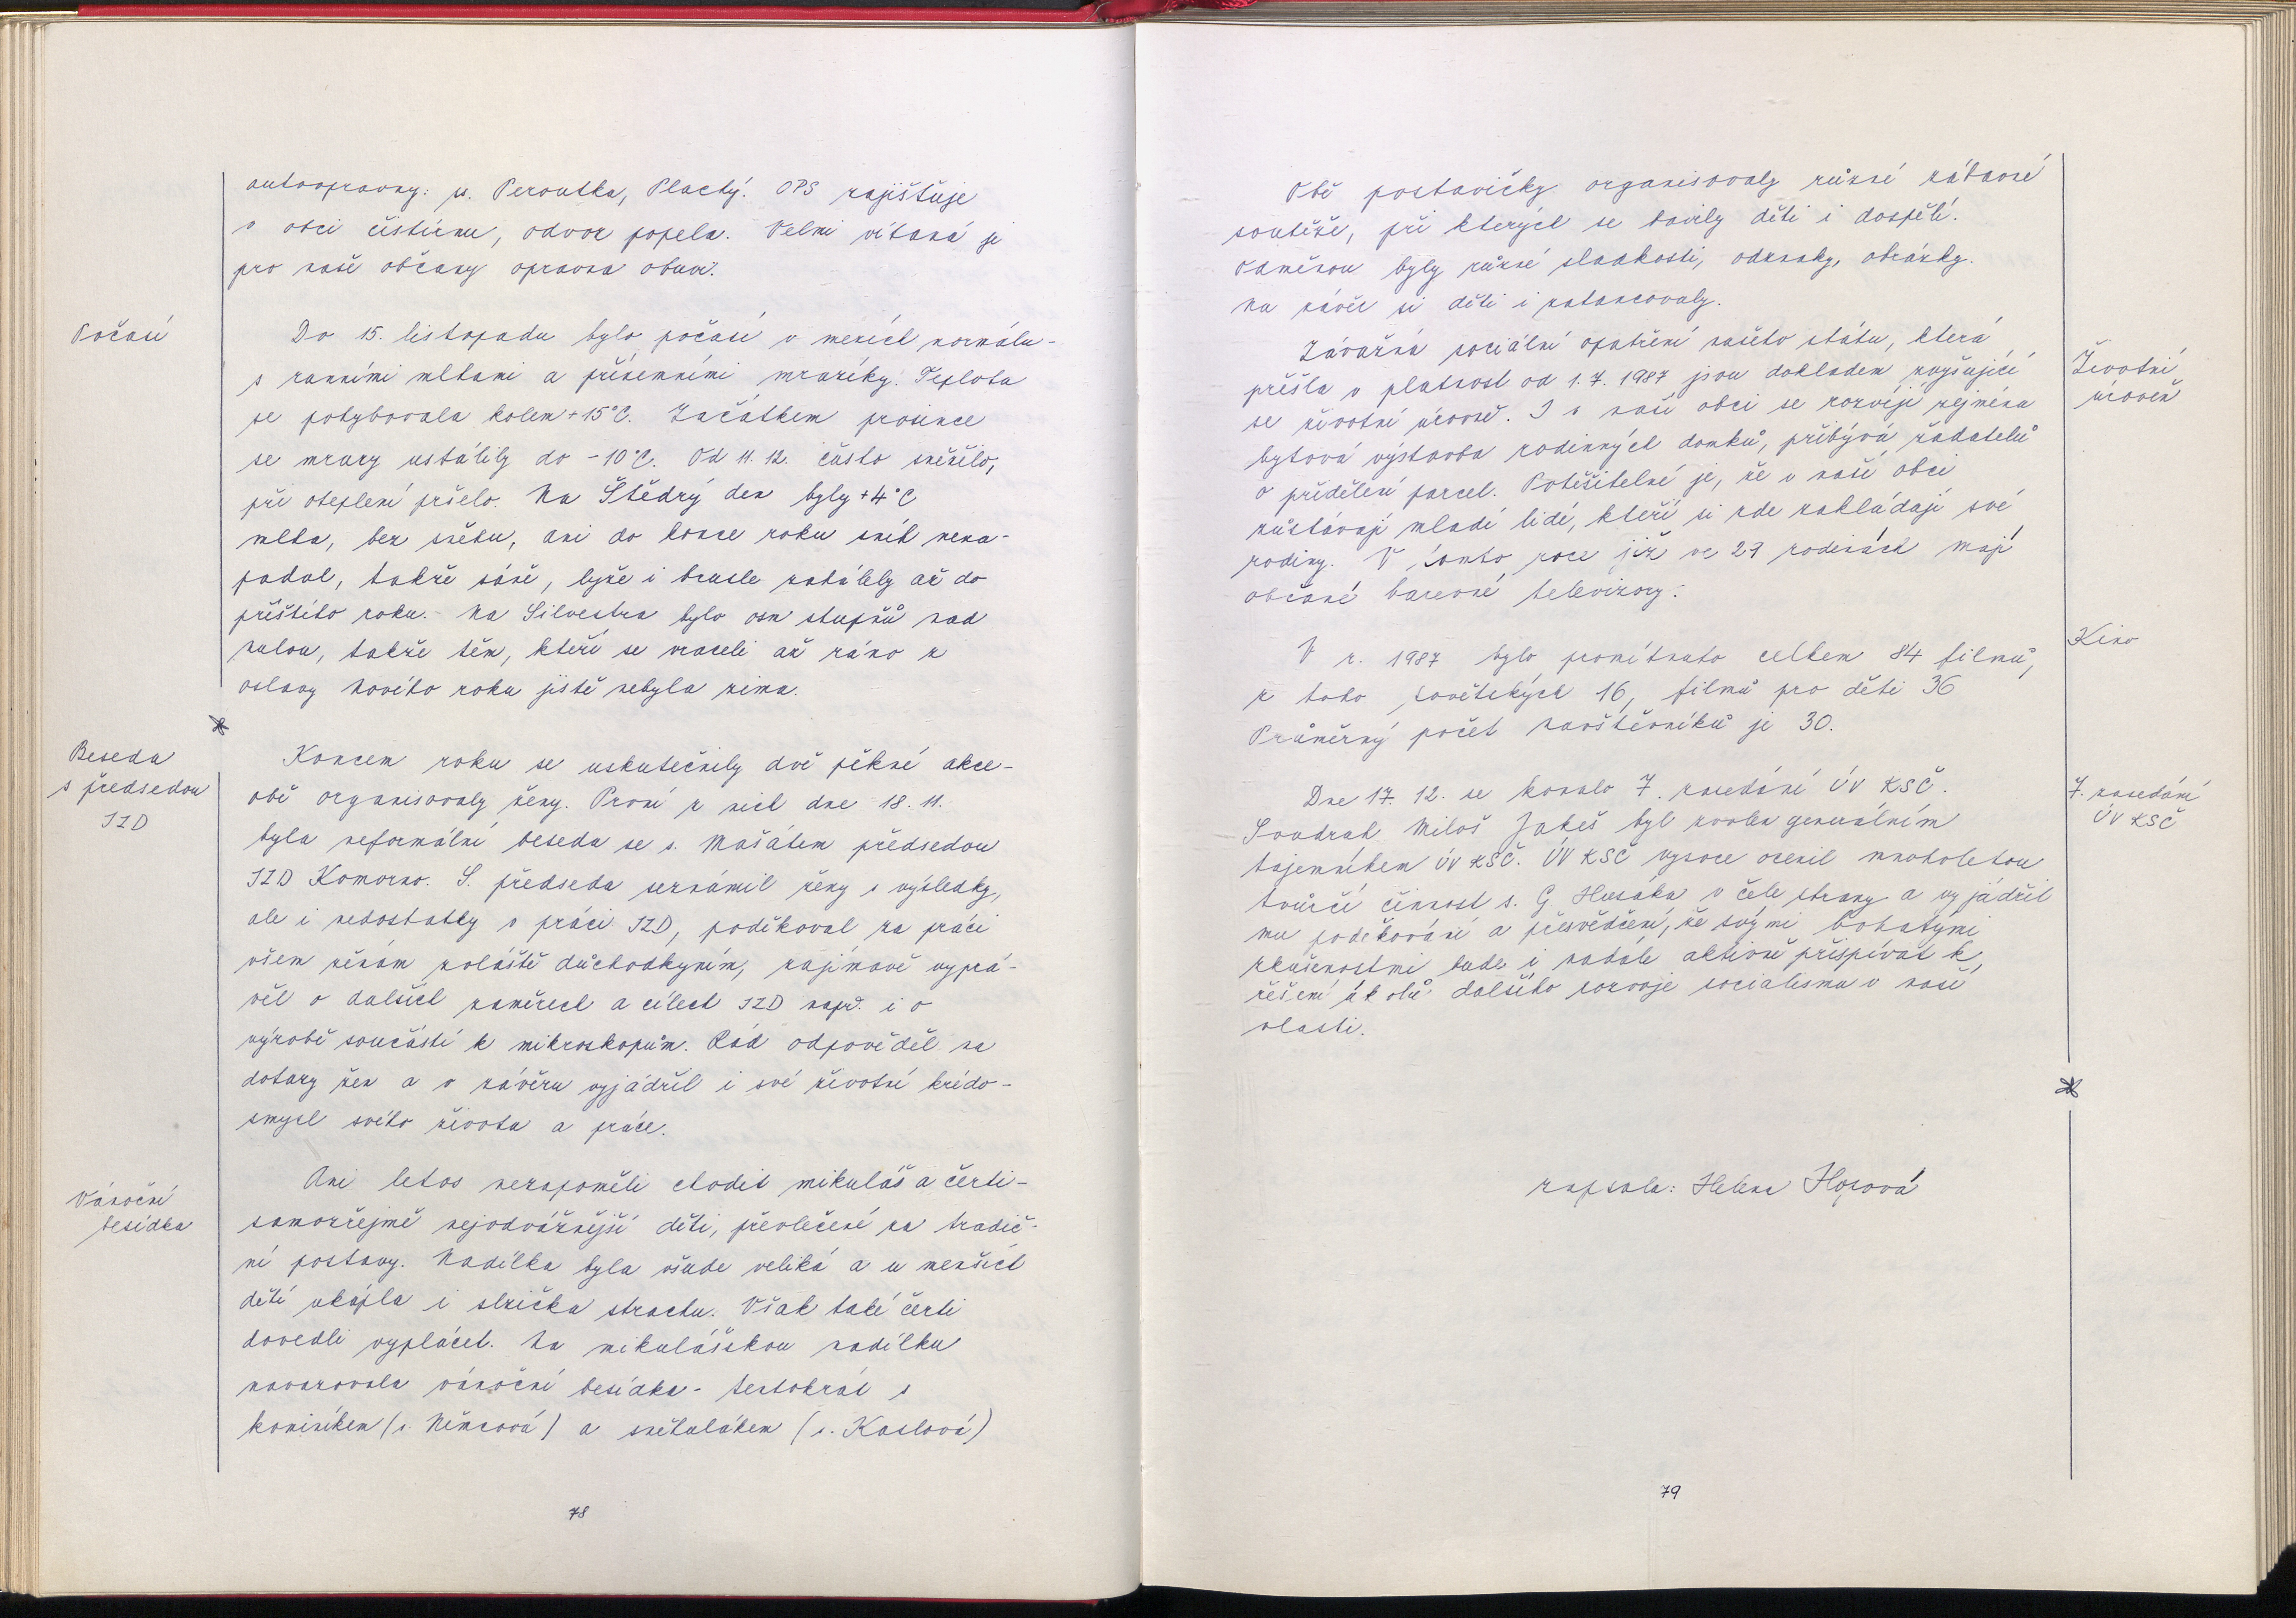 autoopravny: p. Peroutka, Plachý. OPS zajišťuje
v obci čistírnu, odvoz popela. Velmi vítaná je
pro naše občany opravna obuvi.
Počasí
Do 15. listopadu bylo počasí v mezích normálu -
s ranními mlhami a přízemními mrazíky. Teplota
se pohybovala kolem +15°C. Začátkem prosince
se mrazy ustálily do -10°C. Od 11. 12. často sněžilo,
při oteplení pršelo. Na Štědrý den byly +4°C
mlha, bez sněhu, ani do konce roku sníh nena-
padal, takže sáně, lyže i brusle zahálely až do
příštího roku. Na Silvestra bylo osm stupňů nad
nulou, takže těm, kteří se vraceli až ráno z
oslavy Nového roku jistě nebyla zima.
Beseda
s předsedou
JZD
Koncem roku se uskutečnily dvě pěkné akce -
obě organisovaly ženy. První z nich dne 18. 11.
byla neformální beseda se s. Mašátem předsedou
JZD Komorno. S. předseda seznámil ženy s výsledky,
ale i nedostatky v práci JZD, poděkoval za práci
všem ženám zvláště důchodkyním, zajímavě vyprá-
věl o dalších záměrech a cílech JZD např. i o
výrobě součástí k mikroskopům. Rád odpověděl na
dotazy žen a v závěru vyjádřil i své životní krédo -
smysl svého života a práce.
Vánoční
besídka
Ani letos nezapoměli chodit mikuláš a čerti -
samozřejmě nejodvážnější děti, převlečené za tradič-
ní postavy. Nadílka byla všude veliká a u menších
dětí ukápla i slzička strachu. Však také čerti
dovedli vyplácet. Na mikulášskou nadílku
navazovala vánoční besídka - tentokrát s
kominíkem (s. Němcová) a sněhulákem (s. Kaslová)
78
Obě postavičky organisovaly různé zábavné
soutěže, při kterých se bavily děti i dospělí.
Odměnou byly různé sladkosti, odznaky, obrázky.
Na závěr si děti i zatancovaly.
Životní
úroveň
Závažná sociální opatření našeho státu, která
přešla v platnost od 1. 7. 1987 jsou dokladem zvyšující
se životní úrovně. I v naší obci se rozvíjí zejména
bytová výstavba rodinných domků, přibývá žadatelů
o přidělení parcel. Potěšitelné je, že v naší obci
zůstávají mladí lidé, kteří si zde zakládají své
rodiny. V tomto roce již ve 27 rodinách mají
občané barevné televizory.
Kino
V r. 1987 bylo promítnuto celkem 84 filmů,
z toho sovětských 16, filmů pro děti 36
Průměrný počet návštěvníků je 30.
7. zasedání
ÚV KSČ
Dne 17. 12. se konalo 7. zasedání ÚV KSČ.
Soudruh Miloš Jakeš byl zvolen generálním
tajemníkem ÚV KSČ. ÚV KSČ vysoce ocenil mnoholetou
tvůrčí činnost s. G. Husáka v čele strany a vyjádřil
mu poděkování a přesvědčení, že svými bohatými
zkušenostmi bude i nadále aktivně přispívat k
řešení úkolů dalšího rozvoje socialismu v naší
vlasti.
zapsala: Helena
79